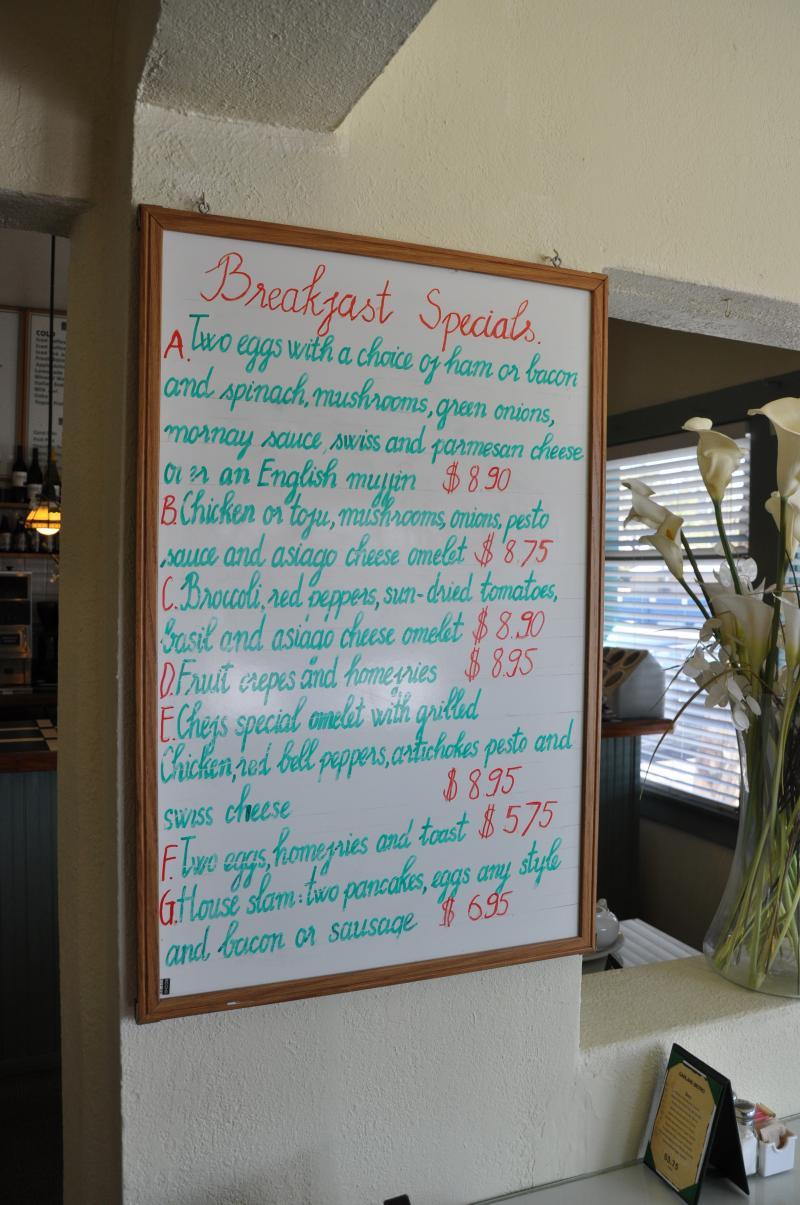 Breakfast Specials.
A. Two eggs with a choice of ham or bacon
and spinach, mushrooms, green onions,
mornay sauce, swiss and parmesan cheese
over an English muffin $ 8.90
B. Chicken or tofu, mushrooms, onions, pesto
sauce and asiago cheese omelet $ 8.75
C. Broccoli, red peppers, sun-dried tomatoes,
basil and asiago cheese omelet $ 8.90
D. Fruit crepes and homefries $ 8.95
E. Chefs special omelet with grilled
Chicken, red bell peppers, artichokes pesto and
swiss cheese $ 8.95
F. Two eggs, homefries and toast $ 5.75
G. House slam: two pancakes, eggs any style
and bacon or sausage $ 6.95
COLD
$3.75